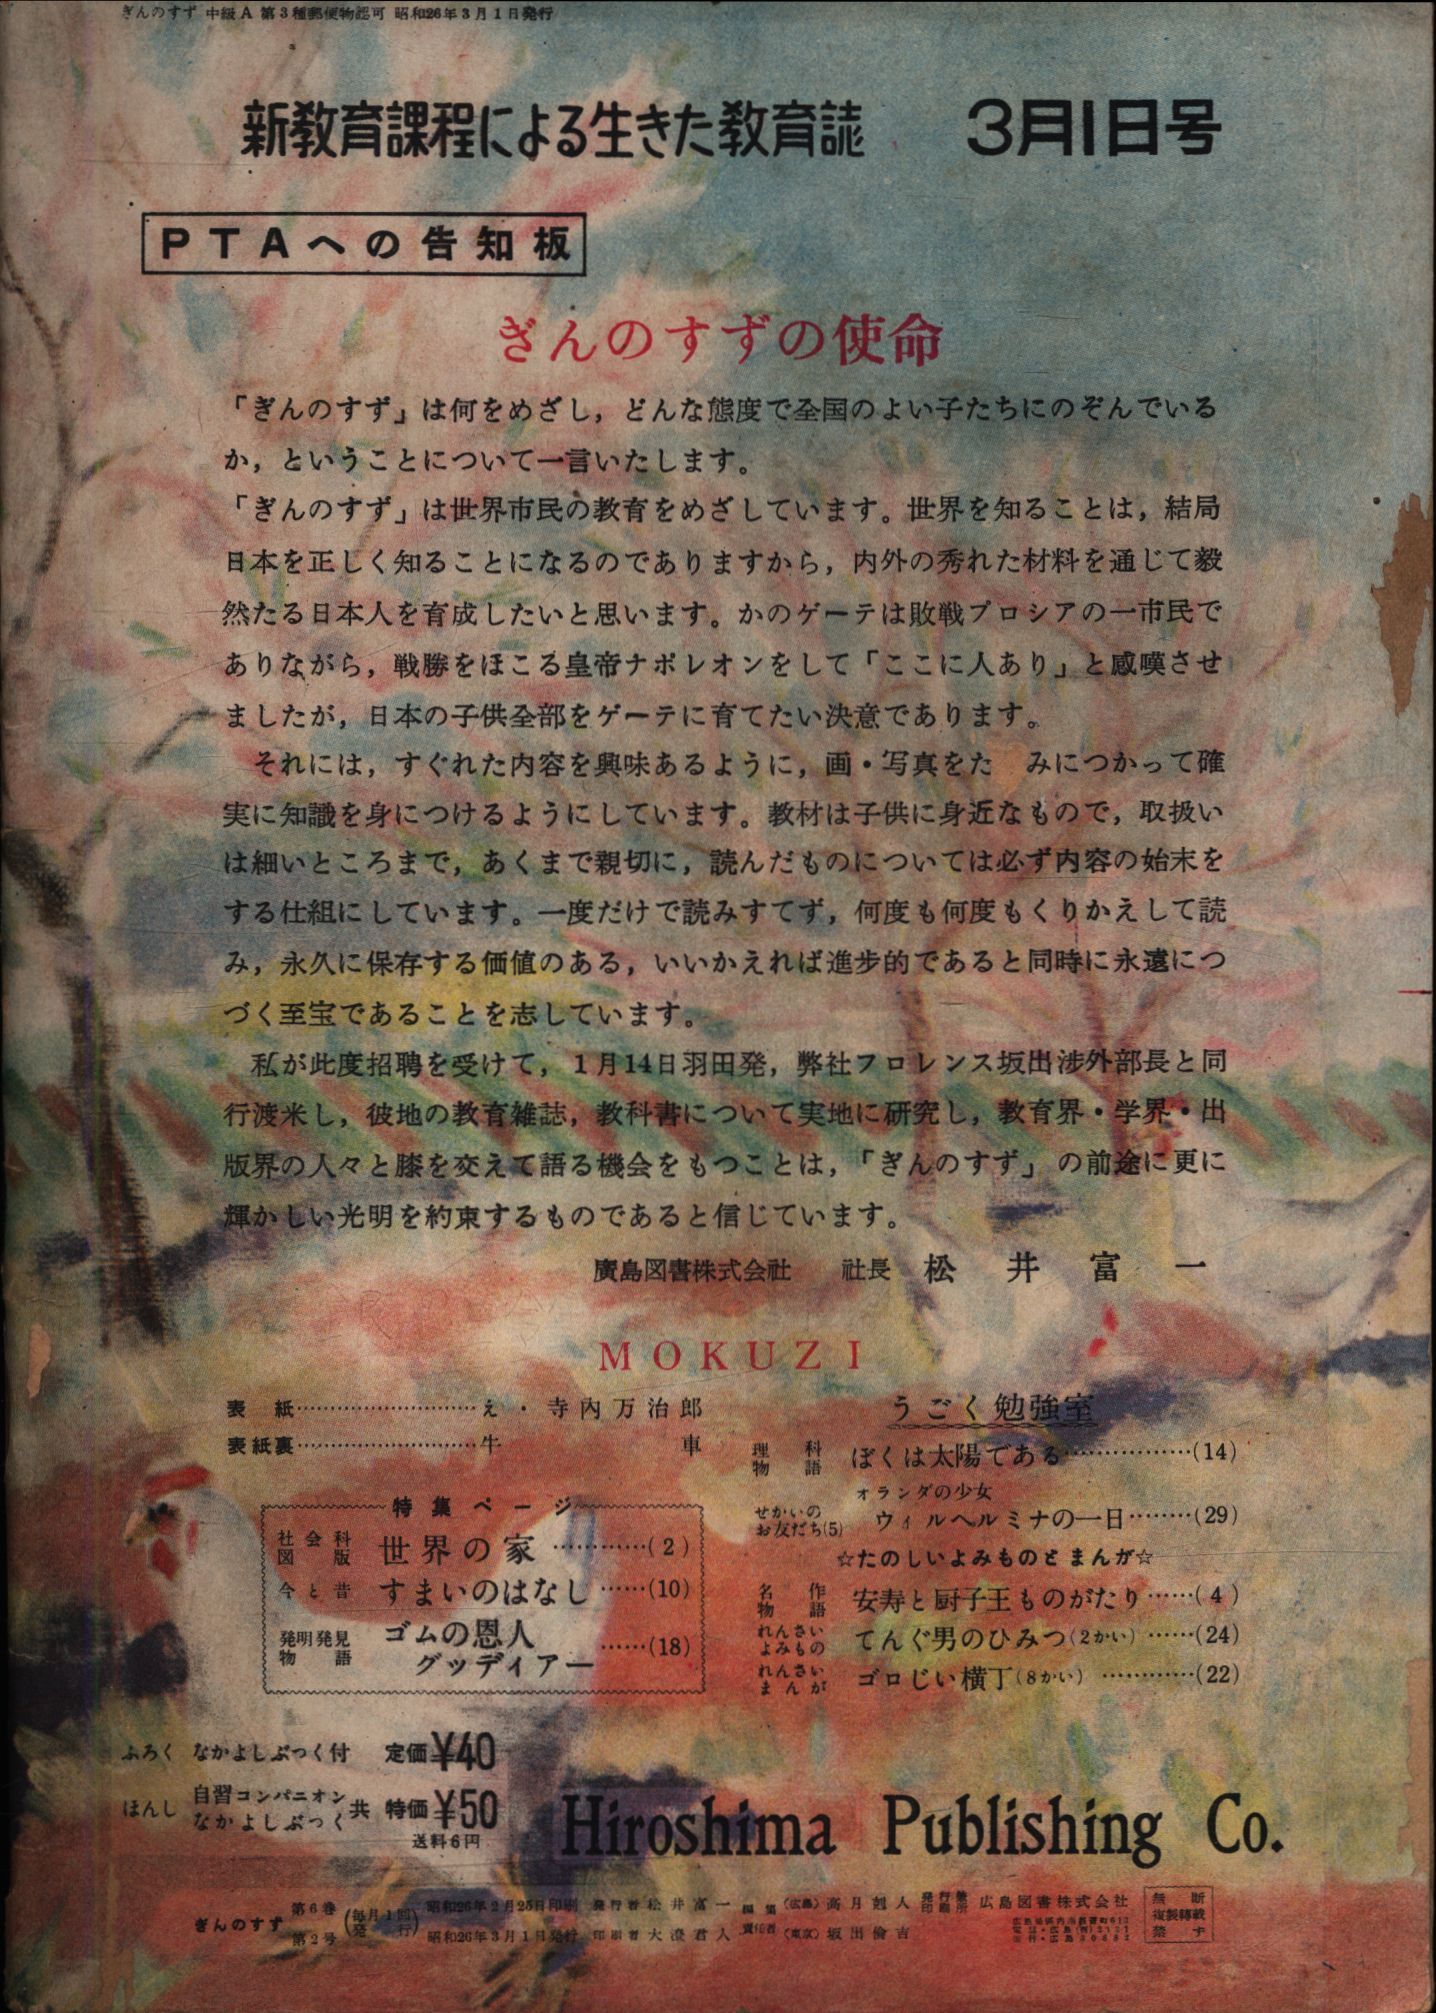 ぎんのすず 中級A 第3種郵便物認可 昭和26年3月1日発行
新教育課程による生きた教育誌　3月1日号
PTAへの告知板
ぎんのすずの使命
「ぎんのすず」は何をめざし，どんな態度で全国のよい子たちにのぞんでいる
か，ということについて一言いたします。
「ぎんのすず」は世界市民の教育をめざしています。世界を知ることは，結局
日本を正しく知ることになるのでありますから，内外の秀れた材料を通じて毅
然たる日本人を育成したいと思います。かのゲーテは敗戦プロシアの一市民で
ありながら，戦勝をほこる皇帝ナポレオンをして「ここに人あり」と感嘆させ
ましたが，日本の子供全部をゲーテに育てたい決意であります。
それには，すぐれた内容を興味あるように，画・写真をた　みにつかって確
実に知識を身につけるようにしています。教材は子供に身近なもので，取扱い
は細いところまで，あくまで親切に，読んだものについては必ず内容の始末を
する仕組にしています。一度だけで読みすてず，何度も何度もくりかえして読
み，永久に保存する価値のある，いいかえれば進歩的であると同時に永遠につ
づく至宝であることを志しています。
私が此度招聘を受けて，1月14日羽田発，弊社フロレンス坂出渉外部長と同
行渡米し，彼地の教育雑誌，教科書について実地に研究し，教育界・学界・出
版界の人々と膝を交えて語る機会をもつことは，「ぎんのすず」の前途に更に
輝かしい光明を約束するものであると信じています。
廣島図書株式会社　社長　松井富一
MOKUZI
表紙…………………………え・寺内万治郎
表紙裏…………………………牛車
特集ページ
社会科図版 世界の家…………(2)
今と昔 すまいのはなし……(10)
発明発見物語 ゴムの恩人
グッディアー……(18)
うごく勉強室
理科物語 ぼくは太陽である………………(14)
オランダの少女
せかいのお友だち(5) ウィルヘルミナの一日………(29)
☆たのしいよみものとまんが☆
名作物語 安寿と厨子王ものがたり……(4)
れんさいよみもの てんぐ男のひみつ(2かい)……(24)
れんさいまんが ゴロじい横丁(8かい)…………(22)
ふろく なかよしぶつく付 定価¥40
ほんし 自習コンパニオン なかよしぶつく 共 特価¥50
送料6円
Hiroshima Publishing Co.
ぎんのすず 第6巻 第2号 (毎月1回発行)
昭和26年2月25日印刷 発行者 松井富一
昭和26年3月1日発行 印刷者 大澄君人
編集責任者 (広島) 高月剋人
(東京) 坂出倫吉
発行兼印刷所 広島図書株式会社
無断複製轉載禁ず